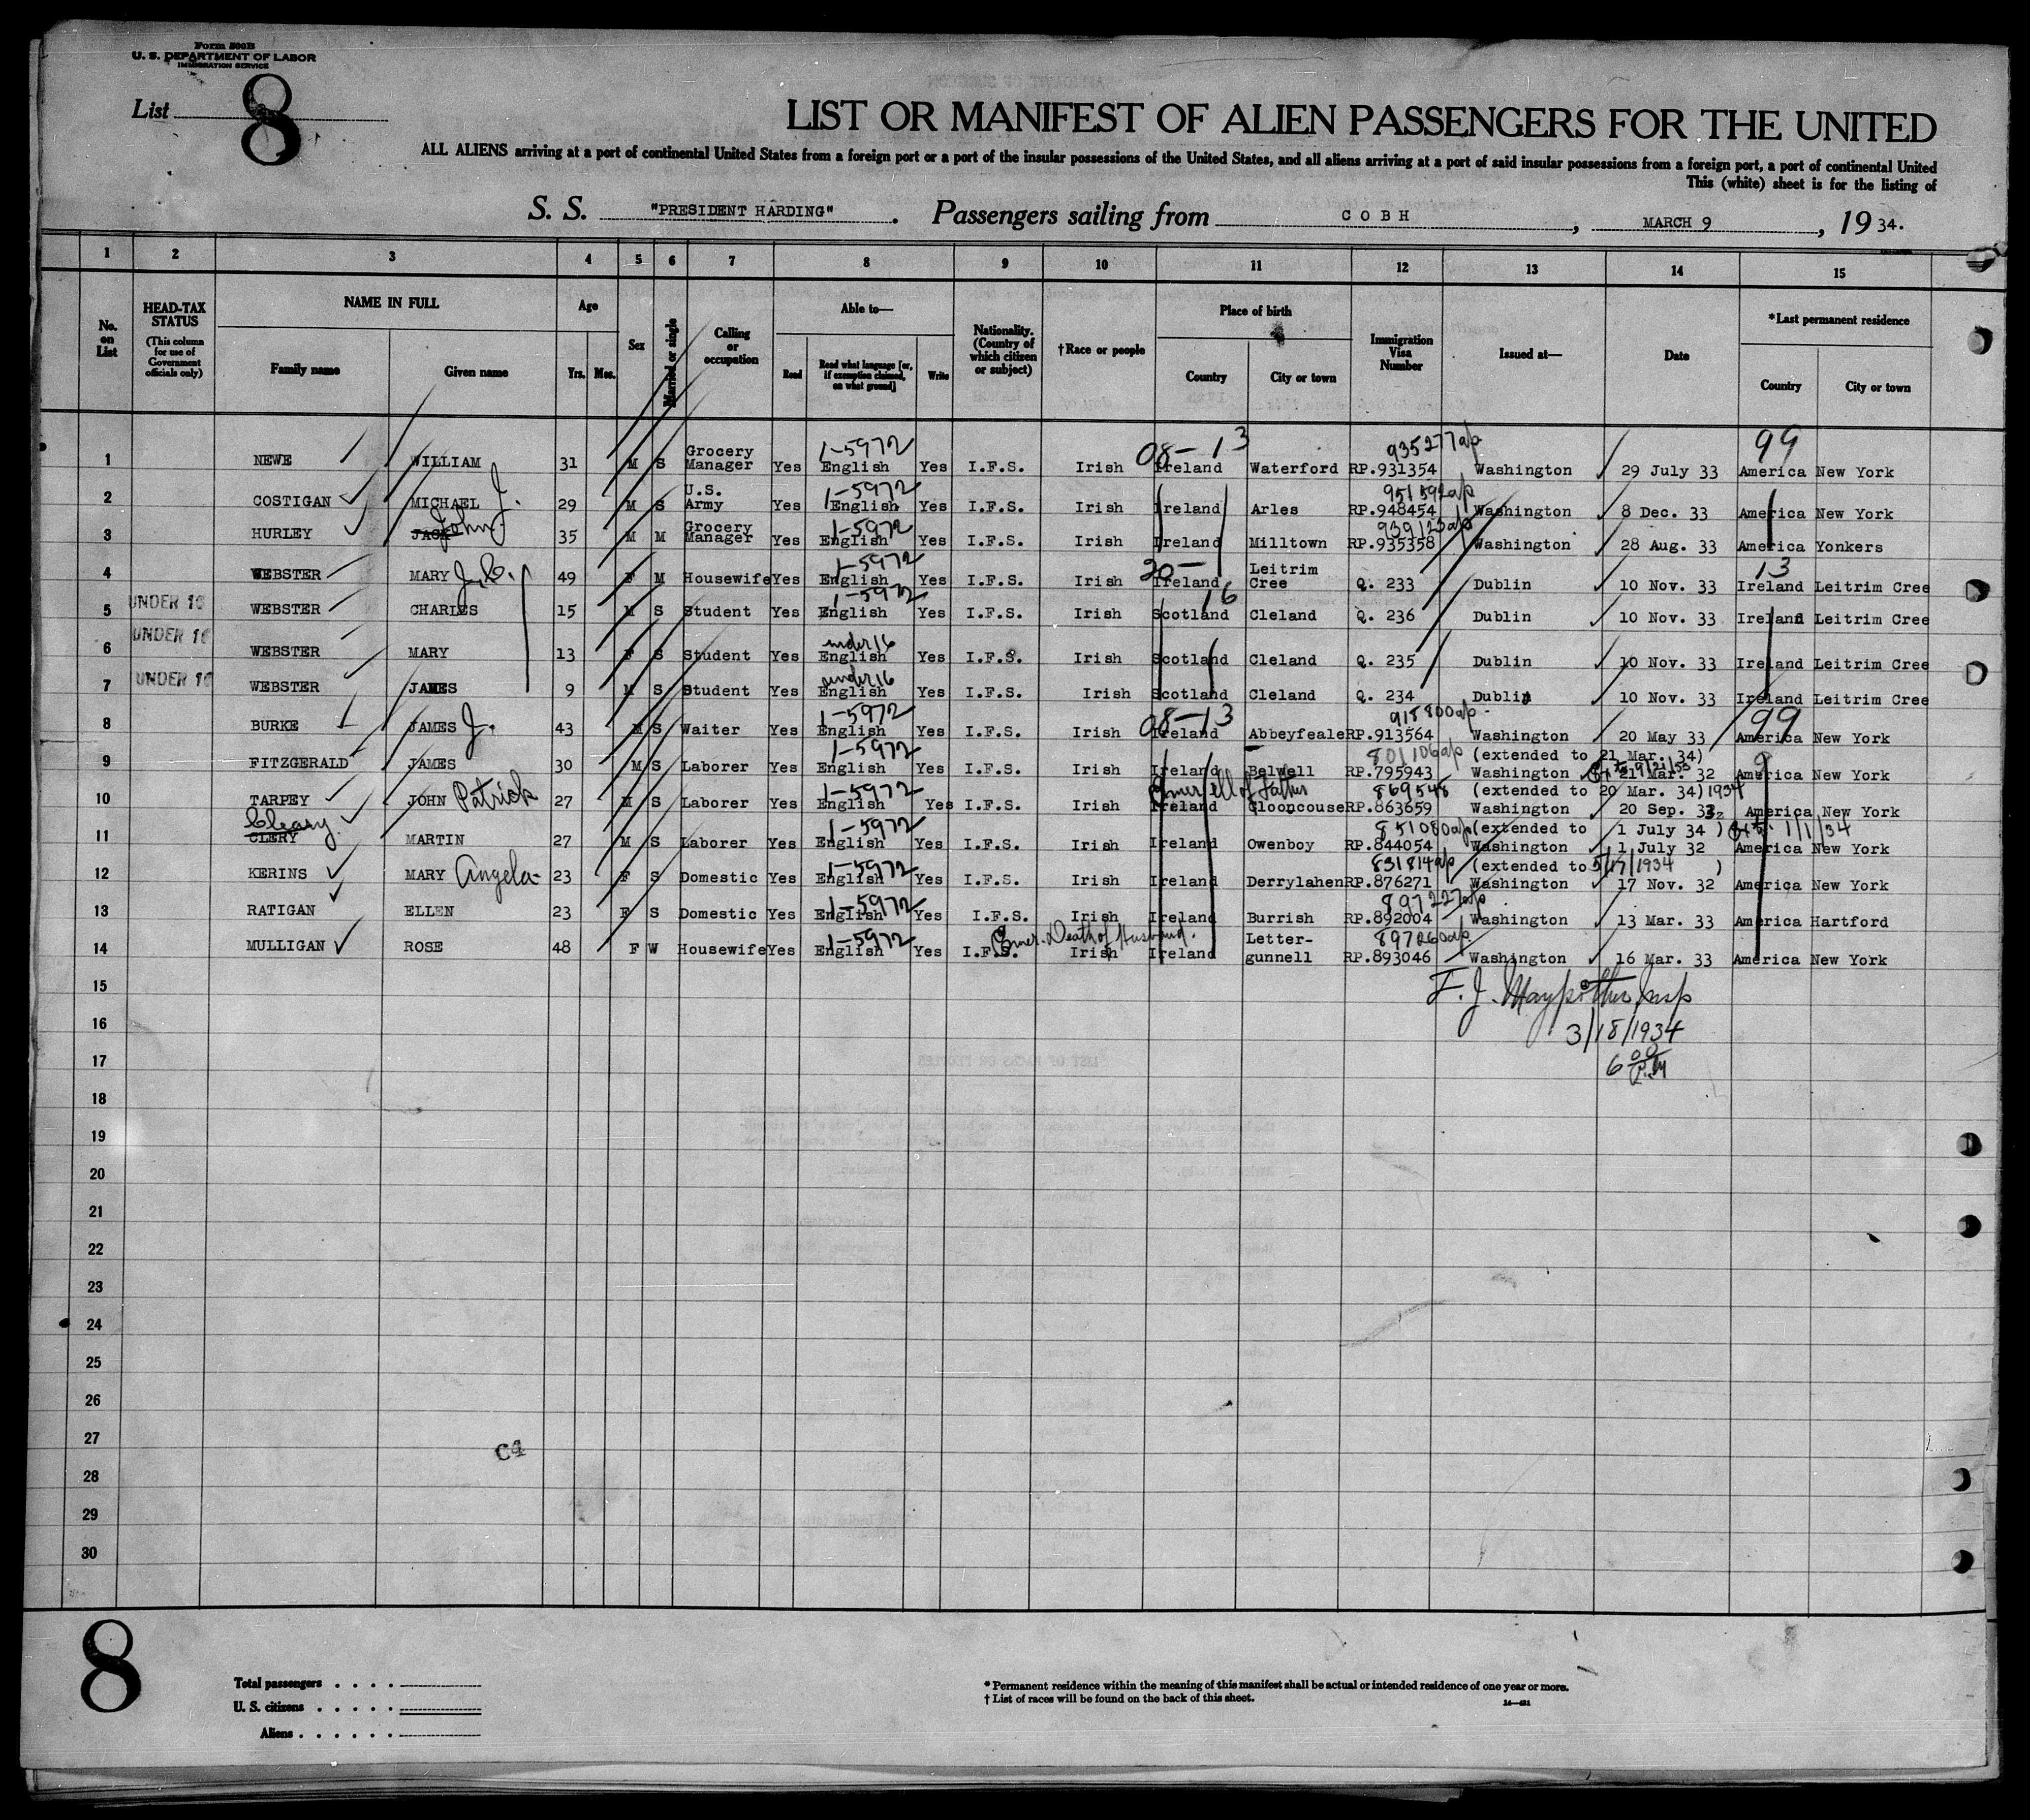 Form 500B
U. S. DEPARTMENT OF LABOR
IMMIGRATION SERVICE
List 8
LIST OR MANIFEST OF ALIEN PASSENGERS FOR THE UNITED
ALL ALIENS arriving at a port of continental United States from a foreign port or a port of the insular possessions of the United States, and all aliens arriving at a port of said insular possessions from a foreign port, a port of continental United
This (white) sheet is for the listing of
S. S. "PRESIDENT HARDING". Passengers sailing from COBH, MARCH 9, 1934.
1 2 3 4 5 6 7 8 9 10 11 12 13 14 15
No. on List
HEAD-TAX STATUS (This column for use of Government officials only)
NAME IN FULL
Family name Given name
Age
Yrs. Mos.
Sex
Married or single
Calling or occupation
Able to—
Read Read what language [or, if exemption claimed, on what ground] Write
Nationality. (Country of which citizen or subject)
†Race or people
Place of birth
Country City or town
Immigration Visa Number
Issued at—
Date
*Last permanent residence
Country City or town
1 NEWE WILLIAM 31 M S Grocery Manager Yes 1-5972 English Yes I.F.S. Irish 08-13 Ireland Waterford 935277a/p RP.931354 Washington 29 July 33 99 America New York
2 COSTIGAN MICHAEL J. 29 M S U.S. Army Yes 1-5972 English Yes I.F.S. Irish Ireland Arles 951592a/p RP.948454 Washington 8 Dec. 33 America New York
3 HURLEY JACK John J. 35 M M Grocery Manager Yes 1-5972 English Yes I.F.S. Irish Ireland Milltown 939123a/p RP.935358 Washington 28 Aug. 33 America Yonkers
4 WEBSTER MARY 49 F M Housewife Yes 1-5972 English Yes I.F.S. Irish 20- Ireland Leitrim Cree Q. 233 Dublin 10 Nov. 33 13 Ireland Leitrim Cree
5 UNDER 16 WEBSTER CHARLES 15 M S Student Yes 1-5972 English Yes I.F.S. Irish 16 Scotland Cleland Q. 236 Dublin 10 Nov. 33 Ireland Leitrim Cree
6 UNDER 16 WEBSTER MARY 13 F S Student Yes under 16 English Yes I.F.S. Irish Scotland Cleland Q. 235 Dublin 10 Nov. 33 Ireland Leitrim Cree
7 UNDER 16 WEBSTER JAMES 9 M S Student Yes under 16 English Yes I.F.S. Irish Scotland Cleland Q. 234 Dublin 10 Nov. 33 Ireland Leitrim Cree
8 BURKE JAMES J. 43 M S Waiter Yes 1-5972 English Yes I.F.S. Irish 08-13 Ireland Abbeyfeale 918800a/p RP.913564 Washington 20 May 33 99 America New York
9 FITZGERALD JAMES 30 M S Laborer Yes 1-5972 English Yes I.F.S. Irish Ireland Belwell 801106a/p RP.795943 (extended to 21 Mar. 34) Washington 21 Mar. 32 America New York
10 TARPEY JOHN Patrick 27 M S Laborer Yes 1-5972 English Yes I.F.S. Irish Ireland Clooncouse 869548 RP.863659 (extended to 20 Mar. 34) 1934 Washington 20 Sep. 32 America New York
11 CLERY Cleary MARTIN 27 M S Laborer Yes 1-5972 English Yes I.F.S. Irish Ireland Owenboy 851080a/p RP.844054 (extended to 1 July 34) 1/1/34 Washington 1 July 32 America New York
12 KERINS MARY Angela 23 F S Domestic Yes 1-5972 English Yes I.F.S. Irish Ireland Derrylahen 831814a/p RP.876271 (extended to 5/17/1934) Washington 17 Nov. 32 America New York
13 RATIGAN ELLEN 23 F S Domestic Yes 1-5972 English Yes I.F.S. Irish Ireland Burrish 897227a/p RP.892004 Washington 13 Mar. 33 America Hartford
14 MULLIGAN ROSE 48 F W Housewife Yes 1-5972 English Yes I.F.S. Death of Husband. Irish Ireland Letter-gunnell 897260a/p RP.893046 Washington 16 Mar. 33 America New York
15
F. J. Insp
16
3/18/1934
17
6 00 P.M
18
19
20
21
22
23
24
25
26
27
C4
28
29
30
8
Total passengers
U. S. citizens
Aliens
* Permanent residence within the meaning of this manifest shall be actual or intended residence of one year or more.
† List of races will be found on the back of this sheet.